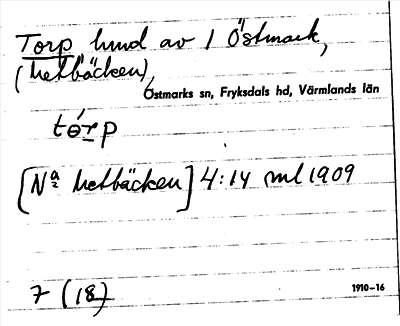 Torp hmd av 1 Östmark,
(hetbäcken),
Östmarks sn, Fryksdals hd, Värmlands län
tórp
[Nª hetbäcken] 4:14 ml 1909
7 (18)
1910-16